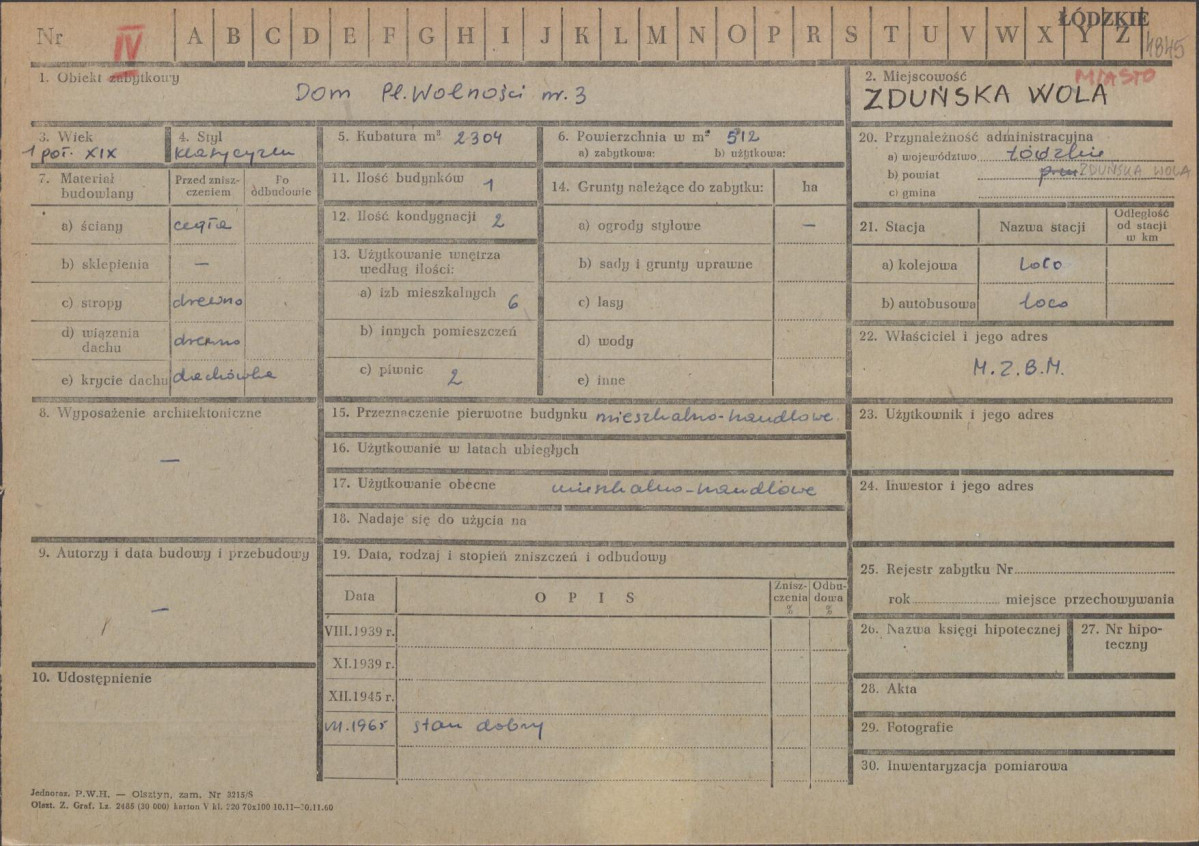 Nr IV A B C D E F G H I J K L M N O P R S T U V W X Y Z ŁÓDZKIE 4845
1. Obiekt zabytkowy
Dom Pl. Wolności nr. 3
2. Miejscowość MIASTO
ZDUŃSKA WOLA
3. Wiek
1 poł. XIX
4. Styl
klasycyzm
5. Kubatura m³ 2304
6. Powierzchnia w m² 512
a) zabytkowa: b) użytkowa:
7. Materiał budowlany
Przed zniszczeniem
Po odbudowie
a) ściany cegła
b) sklepienia —
c) stropy drewno
d) wiązania dachu drewno
e) krycie dachu dachówka
8. Wyposażenie architektoniczne
—
9. Autorzy i data budowy i przebudowy
—
10. Udostępnienie
11. Ilość budynków 1
12. Ilość kondygnacji 2
13. Użytkowanie wnętrza
według ilości:
a) izb mieszkalnych 6
b) innych pomieszczeń
c) piwnic 2
14. Grunty należące do zabytku: ha
a) ogrody stylowe —
b) sady i grunty uprawne
c) lasy
d) wody
e) inne
15. Przeznaczenie pierwotne budynku mieszkalno-handlowe
16. Użytkowanie w latach ubiegłych
17. Użytkowanie obecne mieszkalno-handlowe
18. Nadaje się do użycia na
19. Data, rodzaj i stopień zniszczeń i odbudowy
Data OPIS Zniszczenia % Odbudowa %
VIII.1939 r.
XI.1939 r.
XII.1945 r.
VII.1965 stan dobry
20. Przynależność administracyjna
a) województwo łódzkie
b) powiat ZDUŃSKA WOLA
c) gmina
21. Stacja Nazwa stacji Odległość od stacji w km
a) kolejowa loco
b) autobusowa loco
22. Właściciel i jego adres
M.Z.B.M.
23. Użytkownik i jego adres
24. Inwestor i jego adres
25. Rejestr zabytku Nr
rok miejsce przechowywania
26. Nazwa księgi hipotecznej
27. Nr hipoteczny
28. Akta
29. Fotografie
30. Inwentaryzacja pomiarowa
Jednoraz. P.W.H. — Olsztyn, zam. Nr 3215/S
Olszt. Z. Graf. Lz. 2485 (30 000) karton V kl. 220 70x100 10.11—30.11.60